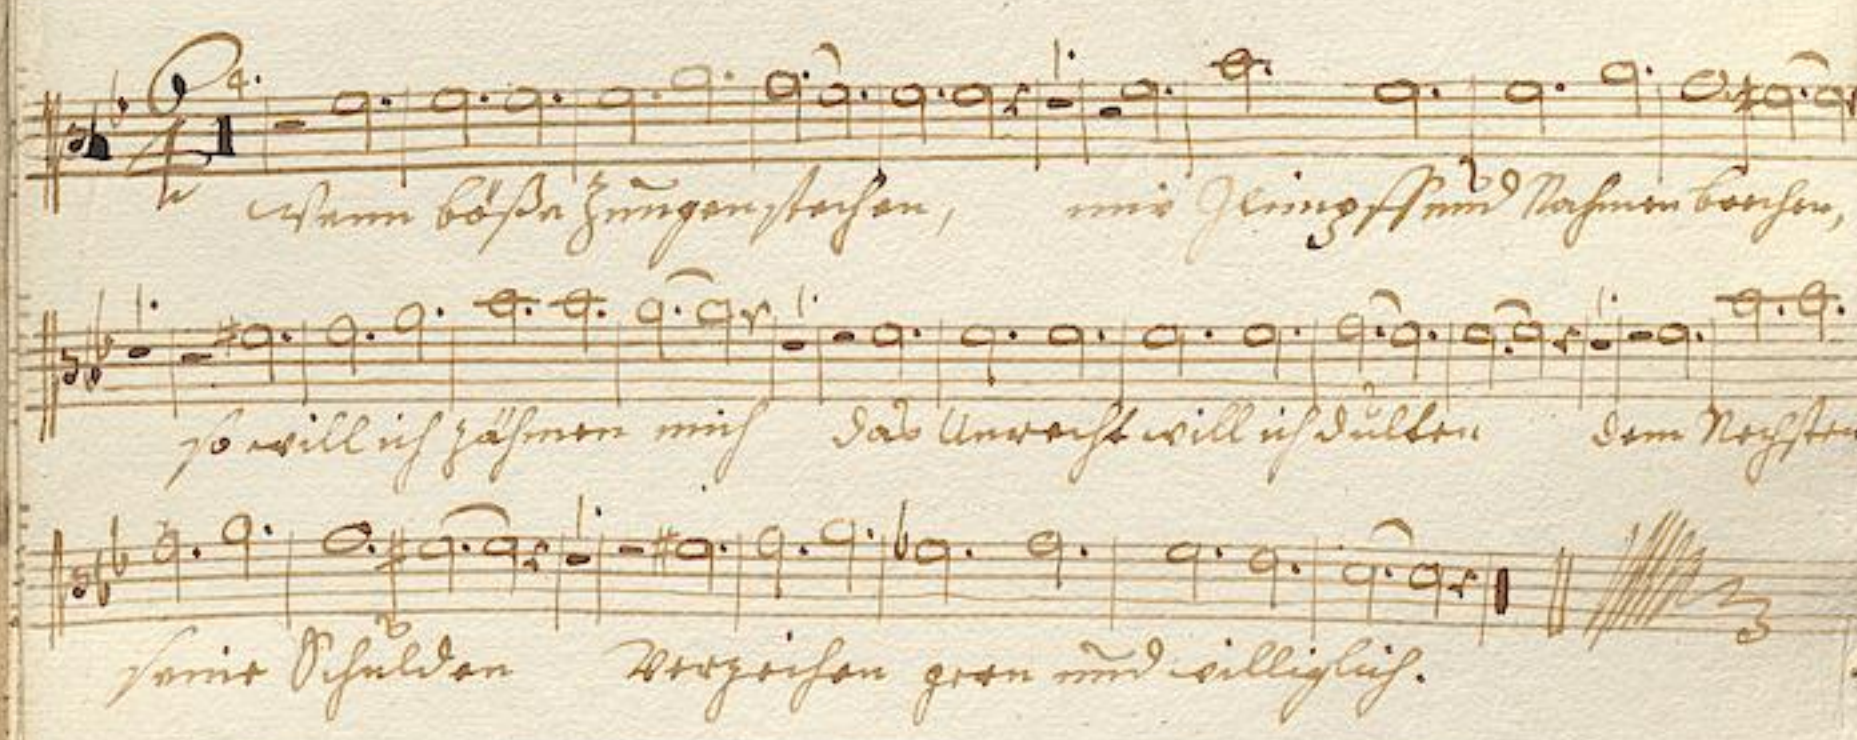 4.
Wenn böße Zungen stechen, mir Glimpff und Nahmen brechen,
so will ich zähmen mich das Unrecht will ich dulten dem Nechsten
seine Schulden Verzeihen gern und williglich.